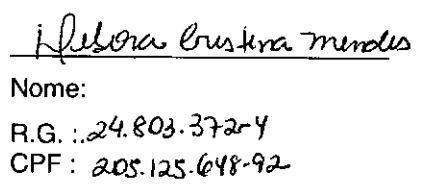 Debora Cristina Mendes
Nome:
R.G. :.24.803.372-4
CPF : 205.125.648-92